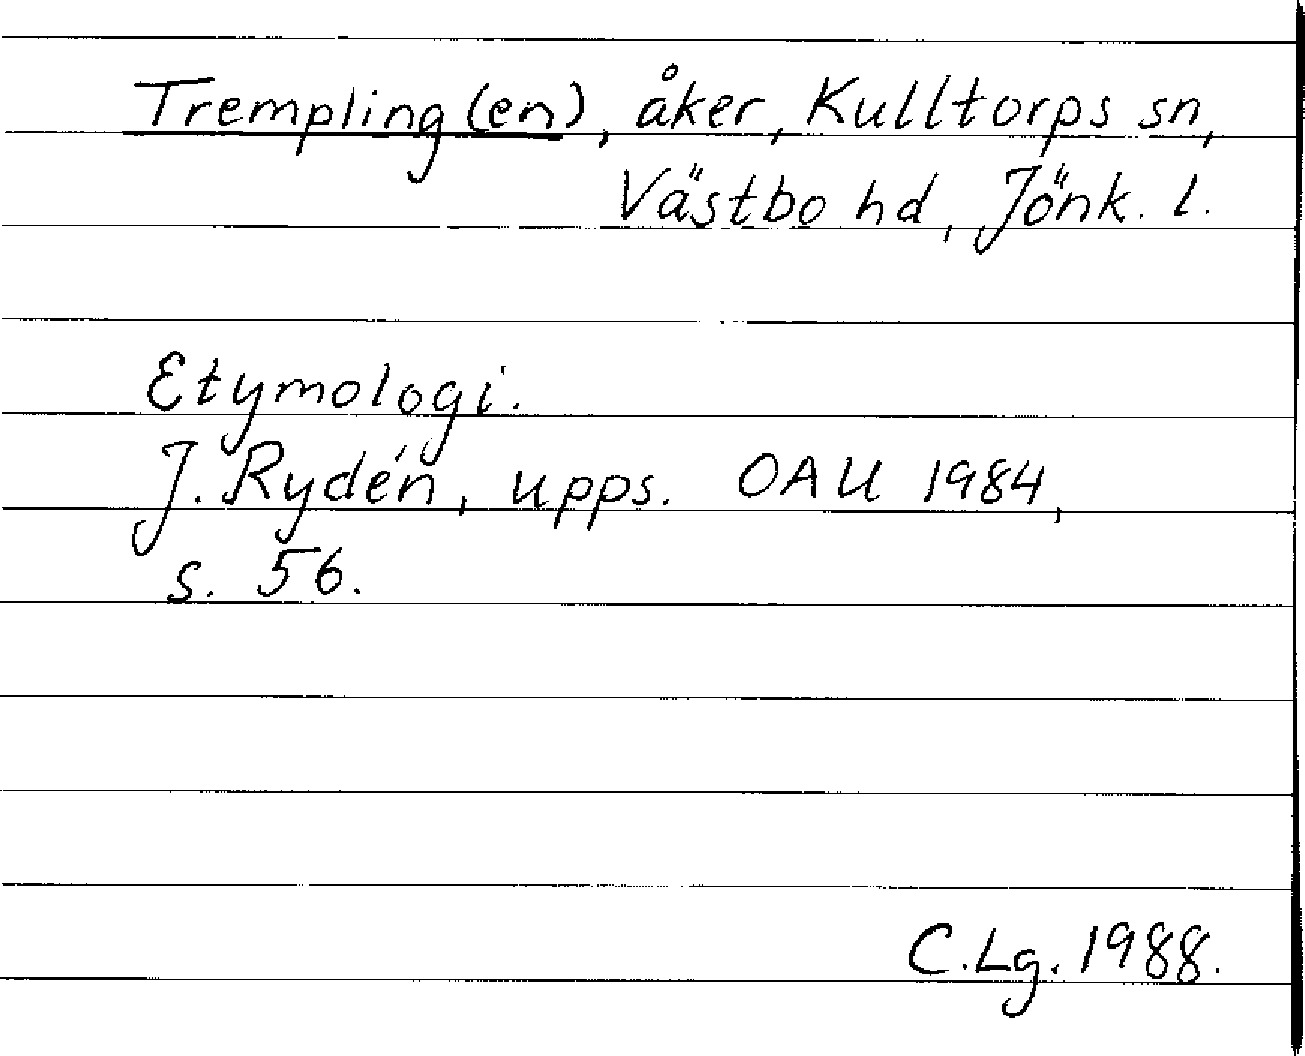 Trempling(en), åker, Kulltorps sn,
Västbo hd, Jönk. l.
Etymologi.
J. Rydén, upps. OAU 1984,
s. 56.
C.Lg. 1988.